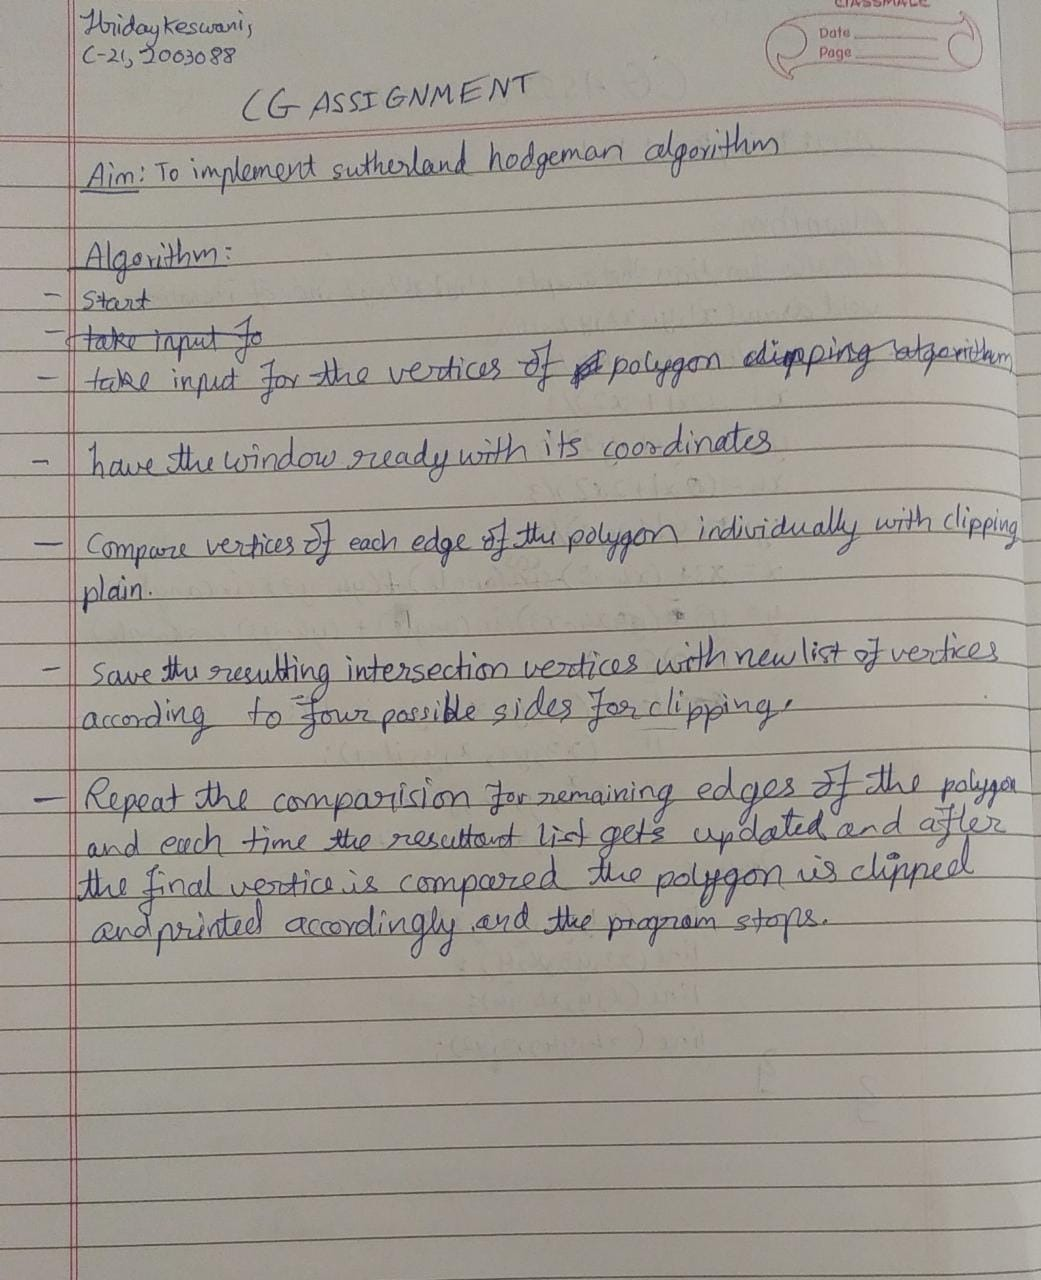 Hriday Keswani,
C-21, 2003088
CLASSMATE
Date
Page
CG ASSIGNMENT
Aim: To implement sutherland hodgeman algorithm
Algorithm:
- Start
- take input fo
- take input for the vertices of polygon clipping algorithm
- have the window ready with its coordinates
- Compare vertices of each edge of the polygon individually with clipping
plain.
- Save the resulting intersection vertices with new list of vertices
according to four possible sides for clipping.
- Repeat the comparision for remaining edges of the polygon
and each time the resultant list gets updated and after
the final vertice is compared the polygon is clipped
and printed accordingly and the program stops.